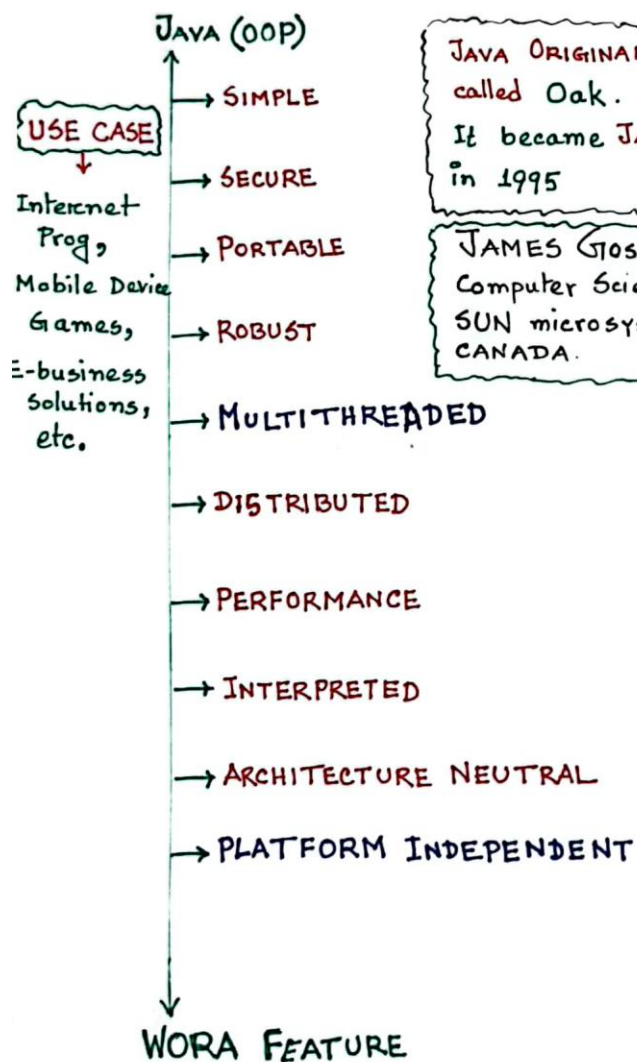 JAVA (OOP)
USE CASE
Internet
Prog,
Mobile Device
Games,
E-business
Solutions,
etc.
SIMPLE
SECURE
PORTABLE
ROBUST
MULTITHREADED
DISTRIBUTED
PERFORMANCE
INTERPRETED
ARCHITECTURE NEUTRAL
PLATFORM INDEPENDENT
WORA FEATURE
JAVA
called Oak.
It became
in 1995
JAMES
Computer
SUN
CANADA.